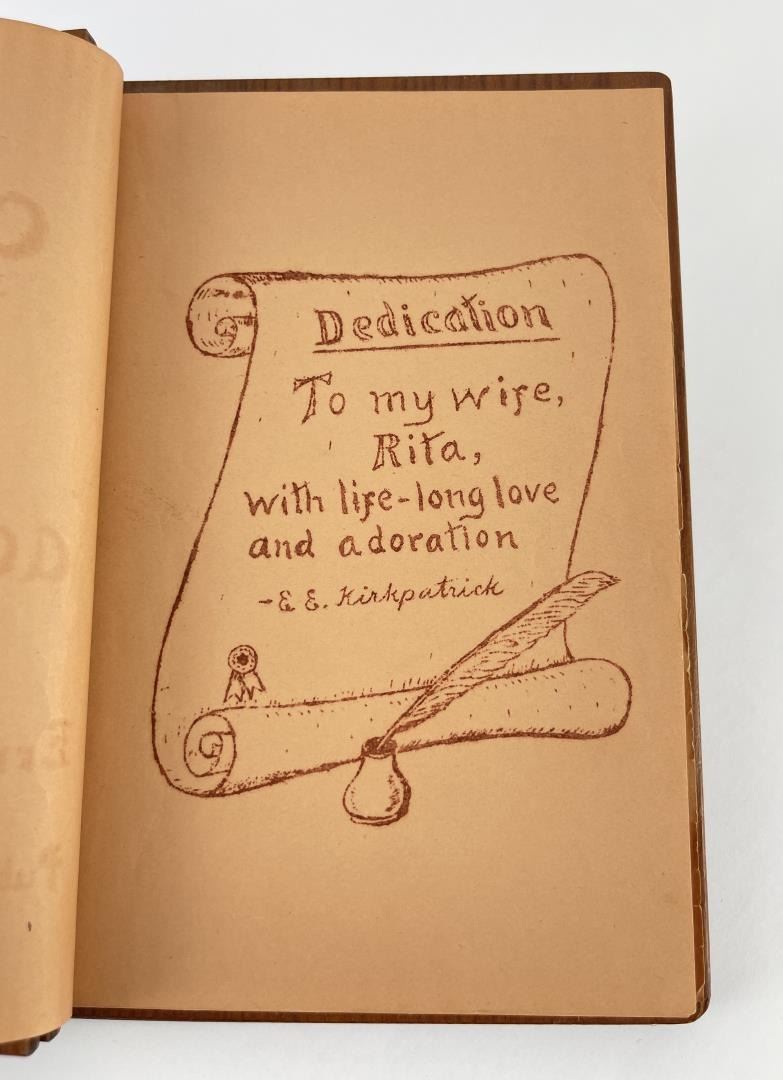 Dedication
To my wife,
Rita,
with life-long love
and adoration
-E. E. Kirkpatrick